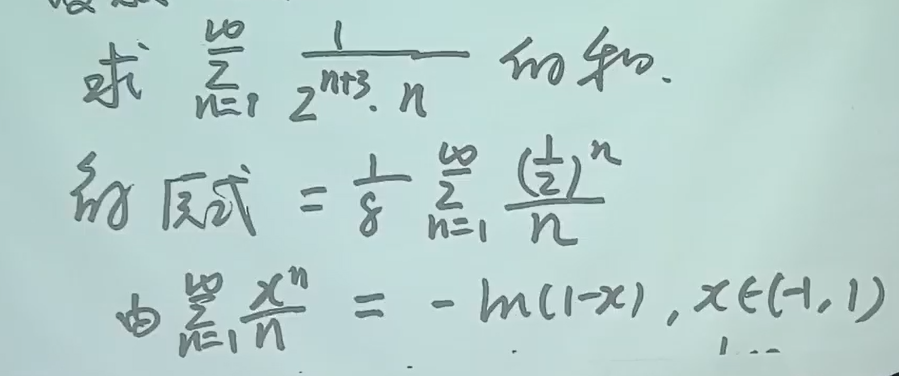 求 $\sum_{n=1}^{\infty} \frac{1}{2^{n+3} \cdot n}$ 的和.
解 原式 $= \frac{1}{8} \sum_{n=1}^{\infty} \frac{(\frac{1}{2})^n}{n}$
由 $\sum_{n=1}^{\infty} \frac{x^n}{n} = -\ln(1-x), x \in (-1, 1)$